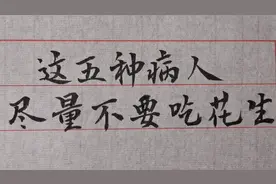 这五种病人
尽量不要吃花生